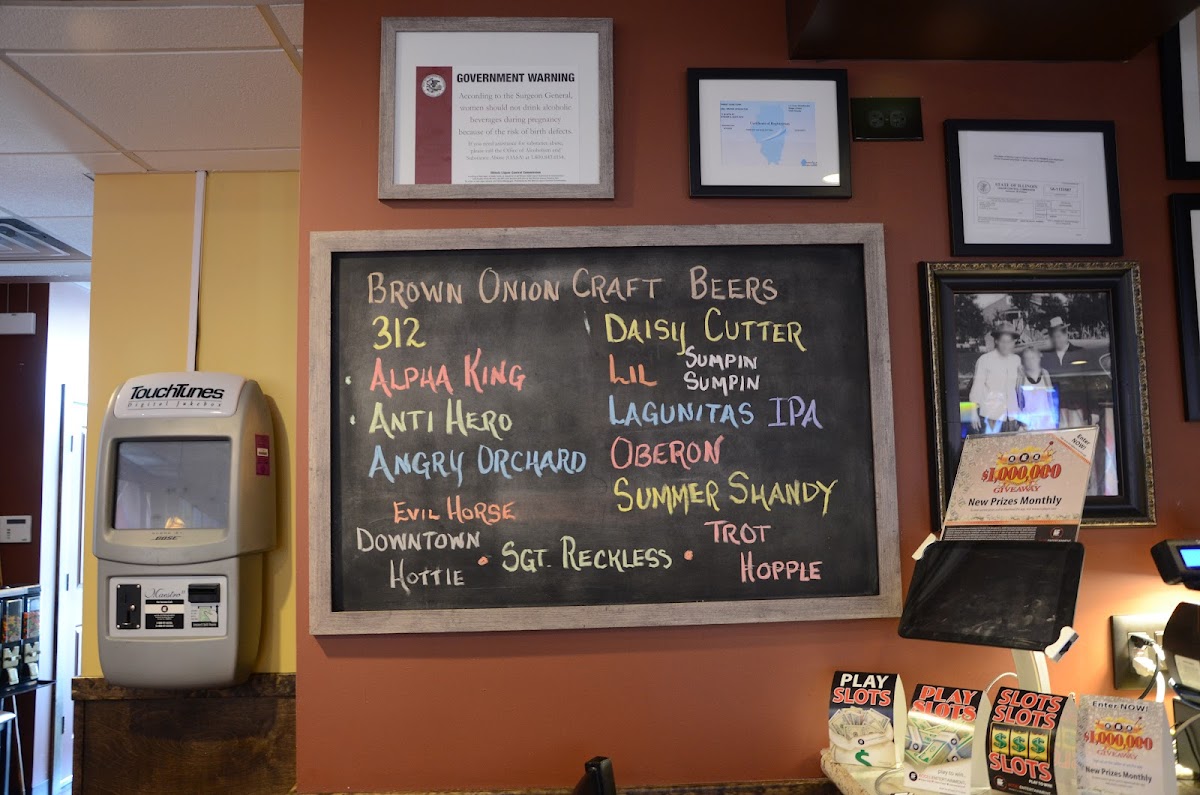 GOVERNMENT WARNING
According to the Surgeon General,
women should not drink alcoholic
beverages during pregnancy
because of the risk of birth defects.
If you need assistance for substance abuse,
please call the Office of Alcoholism and
Certificate of Registration
STATE OF ILLINOIS
BROWN ONION CRAFT BEERS
312
DAISY CUTTER
• ALPHA KING
LIL SUMPIN
SUMPIN
• ANTI HERO
LAGUNITAS IPA
ANGRY ORCHARD
OBERON
SUMMER SHANDY
EVIL HORSE
DOWNTOWN
HOTTIE
• SGT. RECKLESS •
TROT
HOPPLE
TouchTunes
Digital Jukebox
BOSE
Maestro
Enter NOW!
$1,000,000
GIVEAWAY
New Prizes Monthly
PLAY
SLOTS
PLAY
SLOTS
SLOTS
SLOTS
$$$
SLOTS
Enter NOW!
$1,000,000
GIVEAWAY
New Prizes Monthly